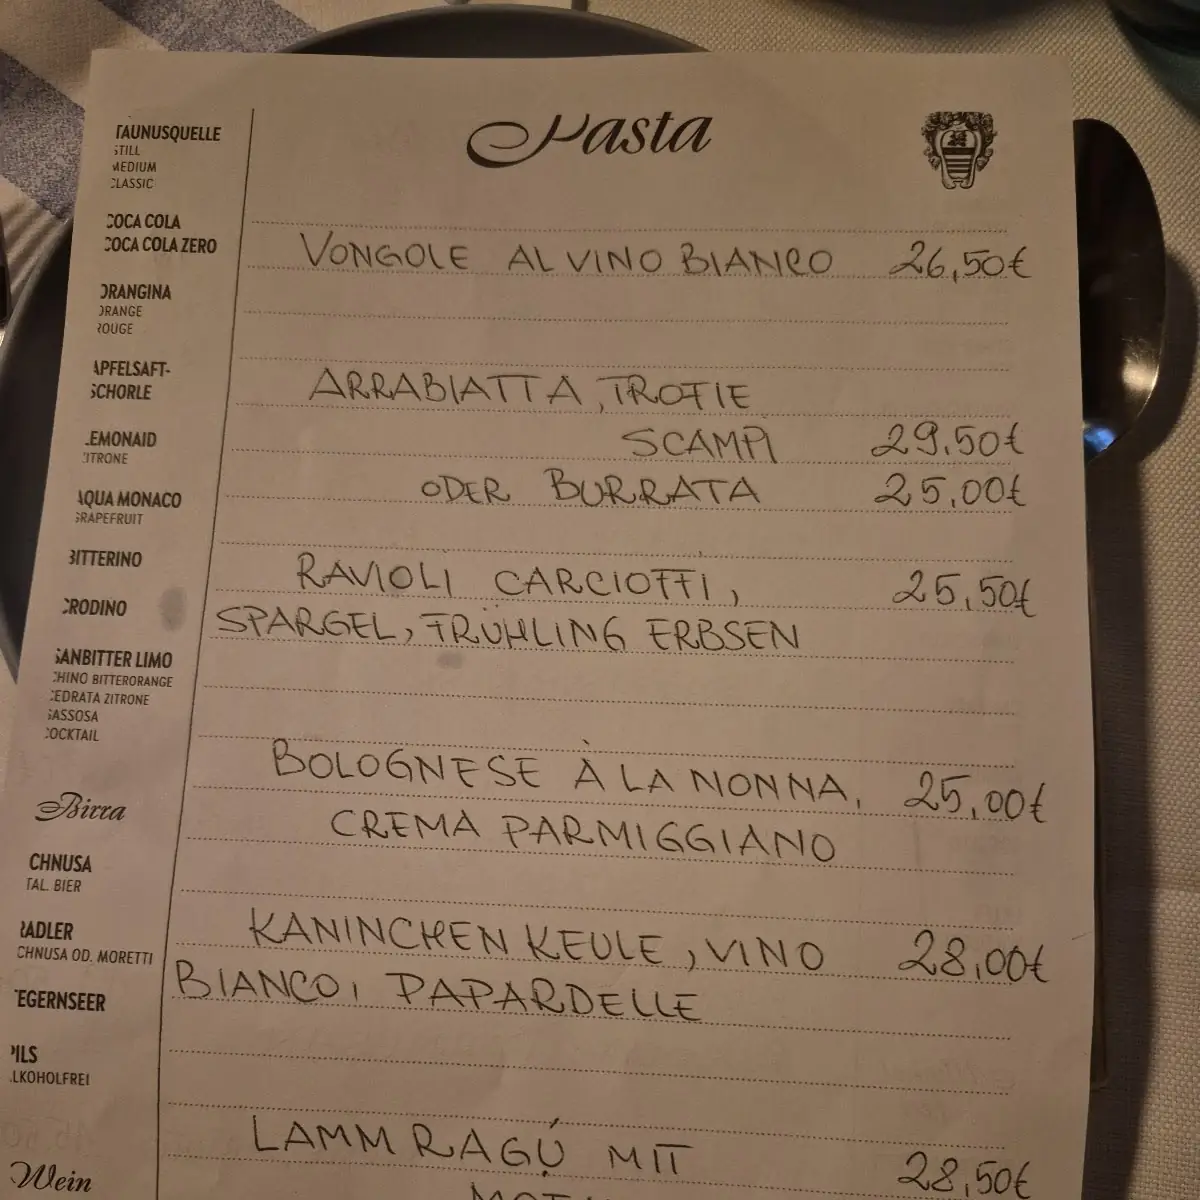 Pasta
VONGOLE AL VINO BIANCO 26,50€
ARRABIATTA, TROFIE
SCAMPI 29,50€
ODER BURRATA 25,00€
RAVIOLI CARCIOFFI, 25,50€
SPARGEL, FRÜHLING ERBSEN
BOLOGNESE À LA NONNA, 25,00€
CREMA PARMIGGIANO
KANINCHEN KEULE, VINO 28,00€
BIANCO, PAPARDELLE
LAMM RAGÚ MIT 28,50€
TAUNUSQUELLE
STILL
MEDIUM
CLASSIC
COCA COLA
COCA COLA ZERO
ORANGINA
ORANGE
ROUGE
APFELSAFT-
SCHORLE
LEMONAID
ITRONE
AQUA MONACO
GRAPEFRUIT
BITTERINO
CRODINO
SANBITTER LIMO
CHINO BITTERORANGE
CEDRATA ZITRONE
GASSOSA
COCKTAIL
Birra
CHNUSA
TAL. BIER
RADLER
CHNUSA OD. MORETTI
EGERNSEER
PILS
LKOHOLFREI
Wein